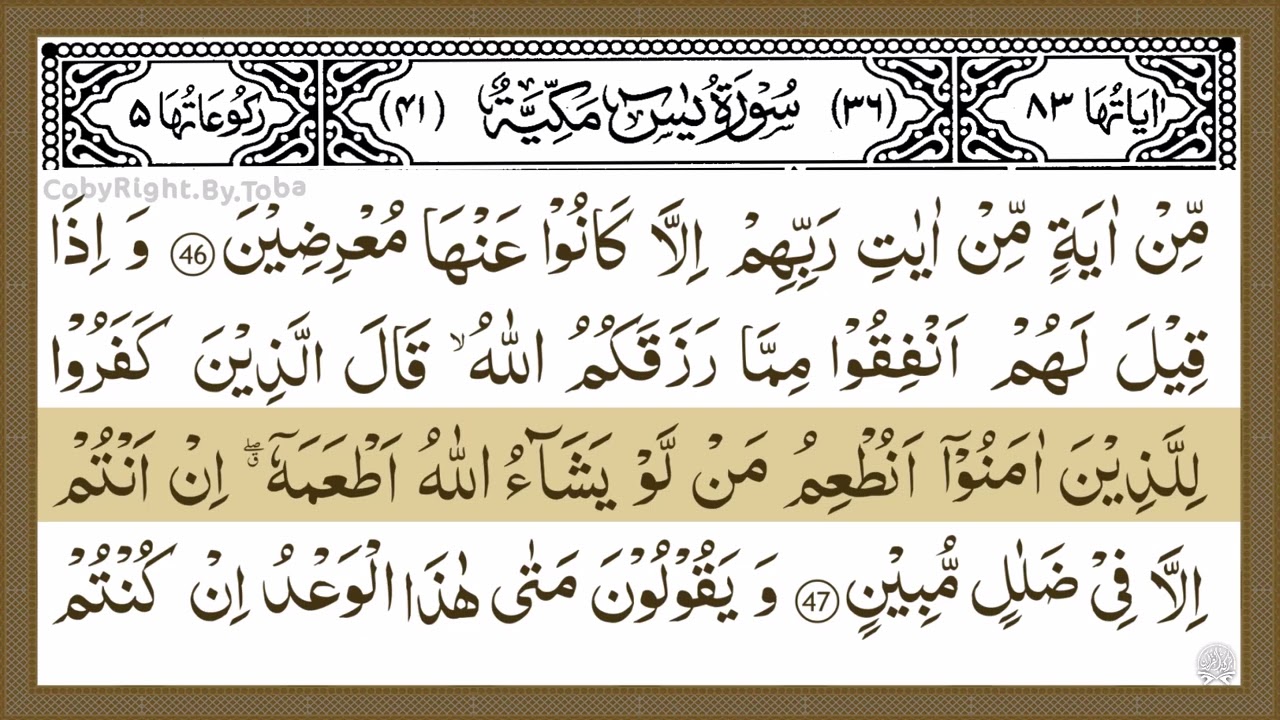 اٰيَاتُهَا ٨٣ (٣٦) سُوْرَةُ يٰسٓ مَكِّيَّةٌ (٤١) رُكُوْعَاتُهَا ٥
CobyRight.By.Toba
مِّنْ اٰيَةٍ مِّنْ اٰيٰتِ رَبِّهِمْ اِلَّا كَانُوْا عَنْهَا مُعْرِضِيْنَ 46 وَ اِذَا
قِيْلَ لَهُمْ اَنْفِقُوْا مِمَّا رَزَقَكُمُ اللّٰهُ ۙ قَالَ الَّذِيْنَ كَفَرُوْا
لِلَّذِيْنَ اٰمَنُوْۤا اَنُطْعِمُ مَنْ لَّوْ يَشَآءُ اللّٰهُ اَطْعَمَهٗۤ ۖۗ اِنْ اَنْتُمْ
اِلَّا فِيْ ضَلٰلٍ مُّبِيْنٍ 47 وَ يَقُوْلُوْنَ مَتٰى هٰذَا الْوَعْدُ اِنْ كُنْتُمْ